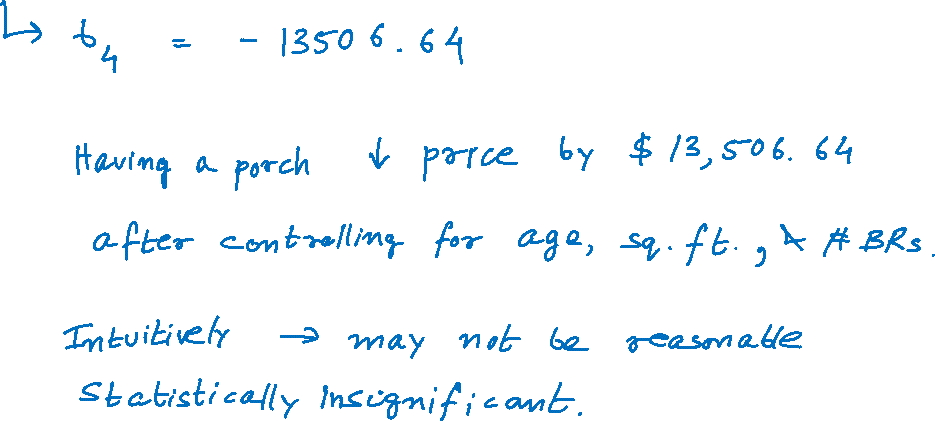 ↳ b4 = - 13506.64
Having a porch ↓ price by $ 13,506.64
after controlling for age, sq. ft., & # BRs.
Intuitively → may not be reasonable
Statistically Insignificant.